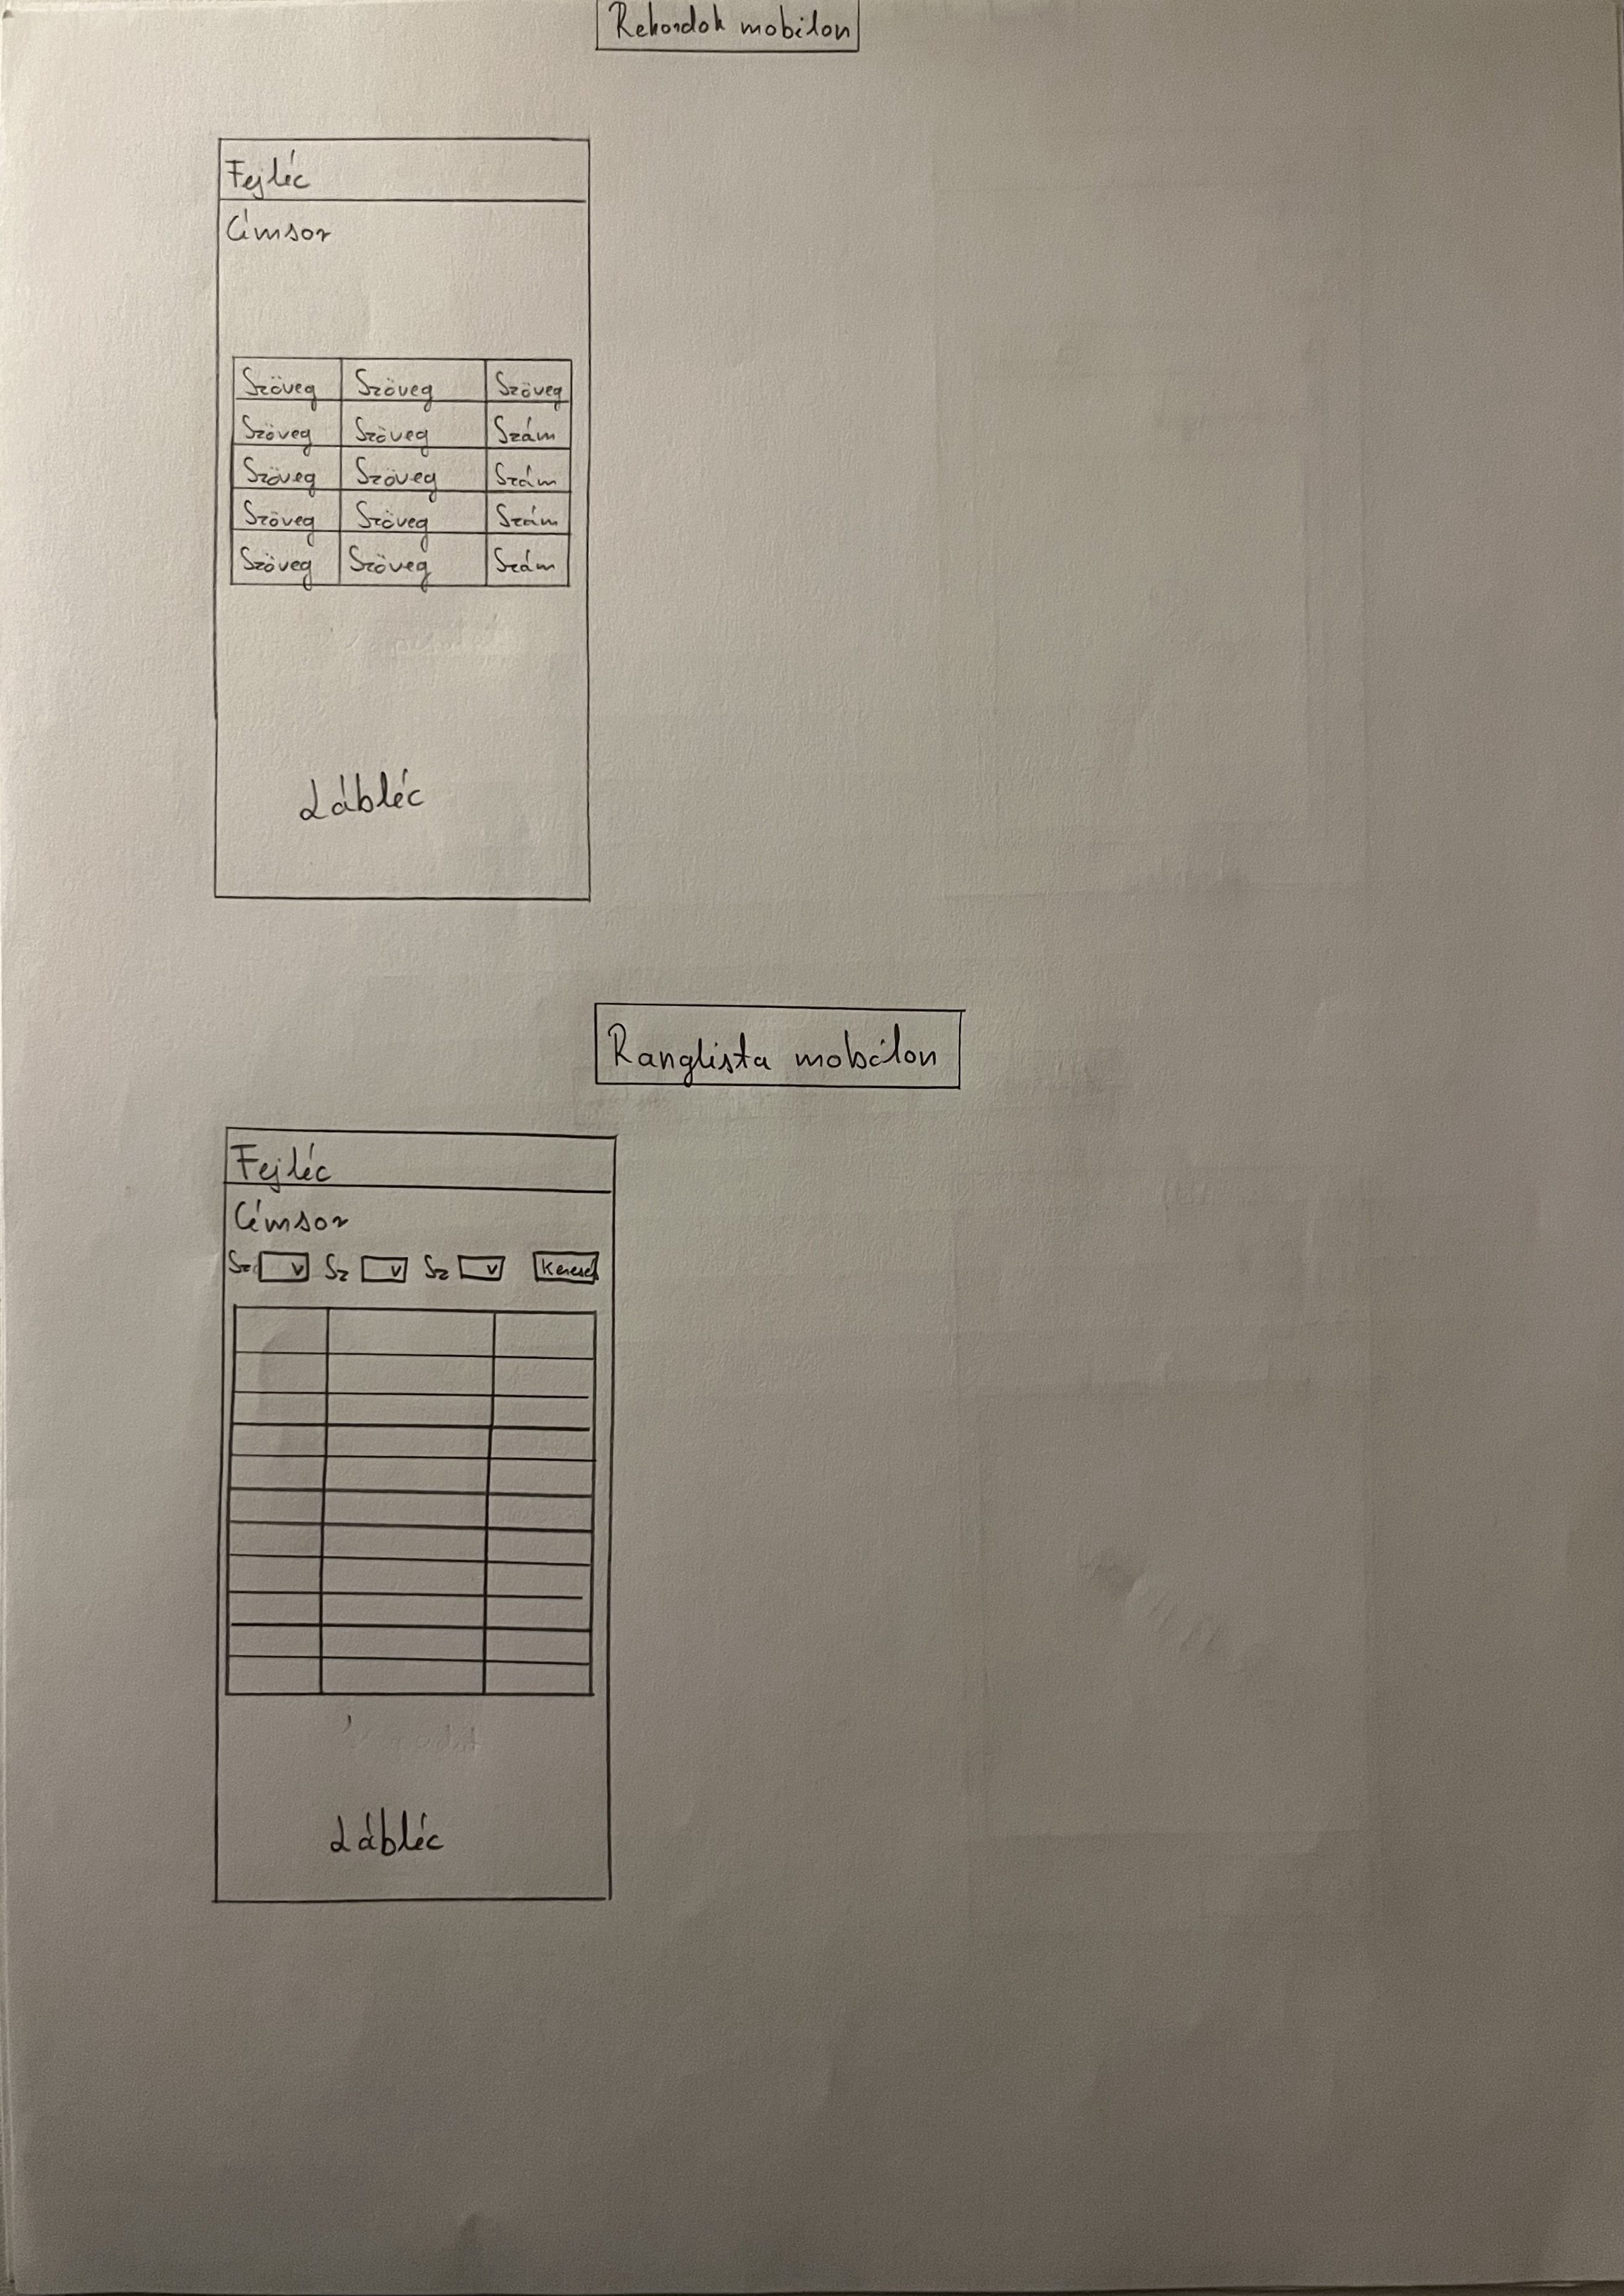 Rekordok mobilon
Fejléc
Címsor
Szöveg Szöveg Szöveg
Szöveg Szöveg Szám
Szöveg Szöveg Szám
Szöveg Szöveg Szám
Szöveg Szöveg Szám
Lábléc
Ranglista mobilon
Fejléc
Címsor
Sz v Sz v Sz v
Lábléc